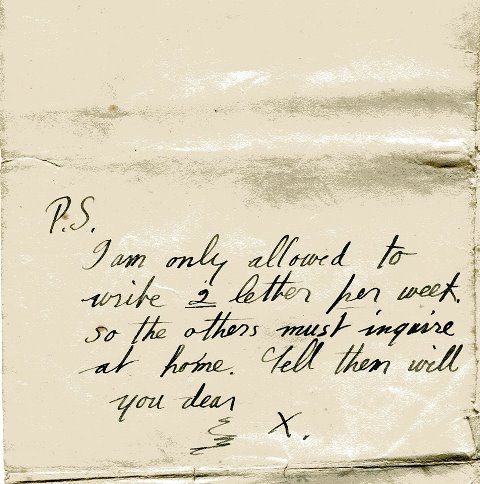 P.S.
I am only allowed to
write 2 letter per week.
so the others must inquire
at home. Tell them will
you dear
X.